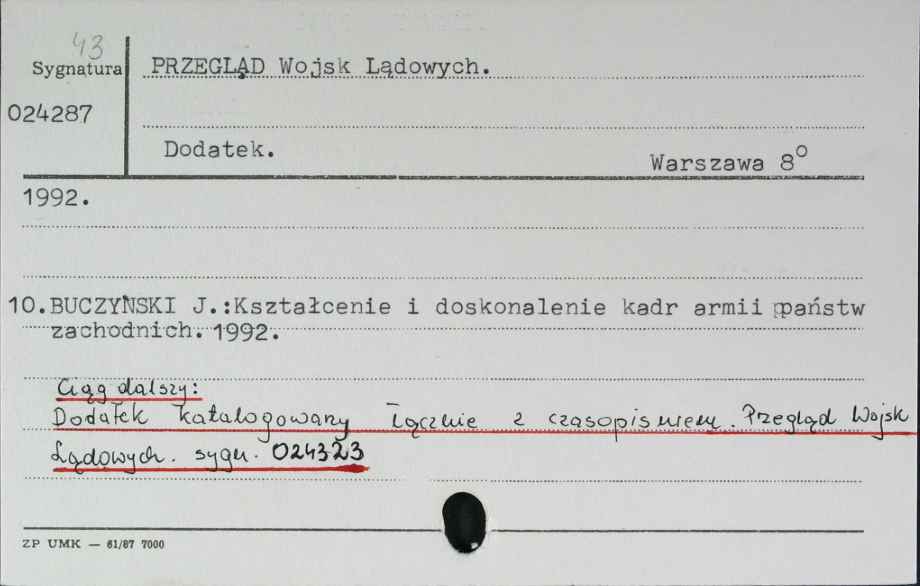 43
Sygnatura
PRZEGLĄD Wojsk Lądowych.
024287
Dodatek.
Warszawa 8°
1992.
10. BUCZYŃSKI J.:Kształcenie i doskonalenie kadr armii państw
zachodnich. 1992.
Ciąg dalszy:
Dodatek katalogowany łącznie z czasopismem. Przegląd Wojsk
Lądowych. sygn. 024323
ZP UMK — 61/87 7000